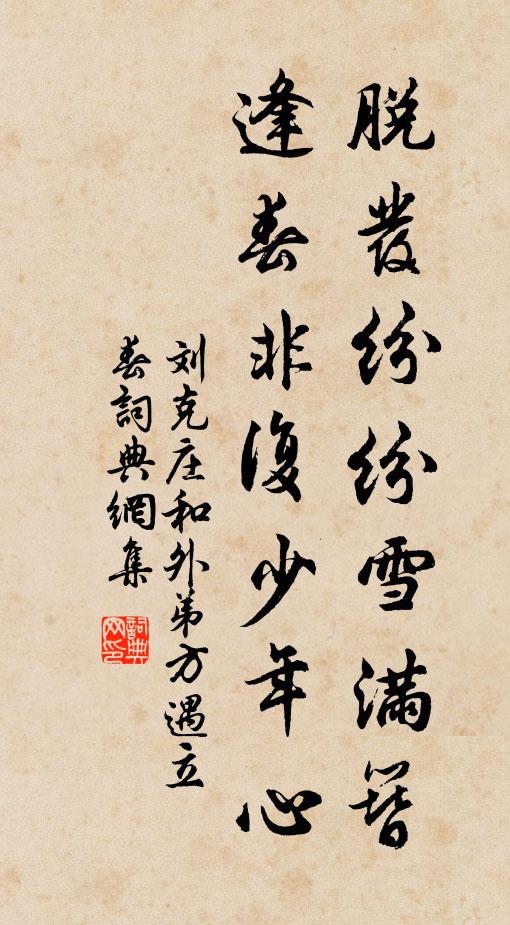 脱发纷纷雪满簪
逢春非復少年心
刘克庄和外弟方遇立
春詞典網集
詞典
网印